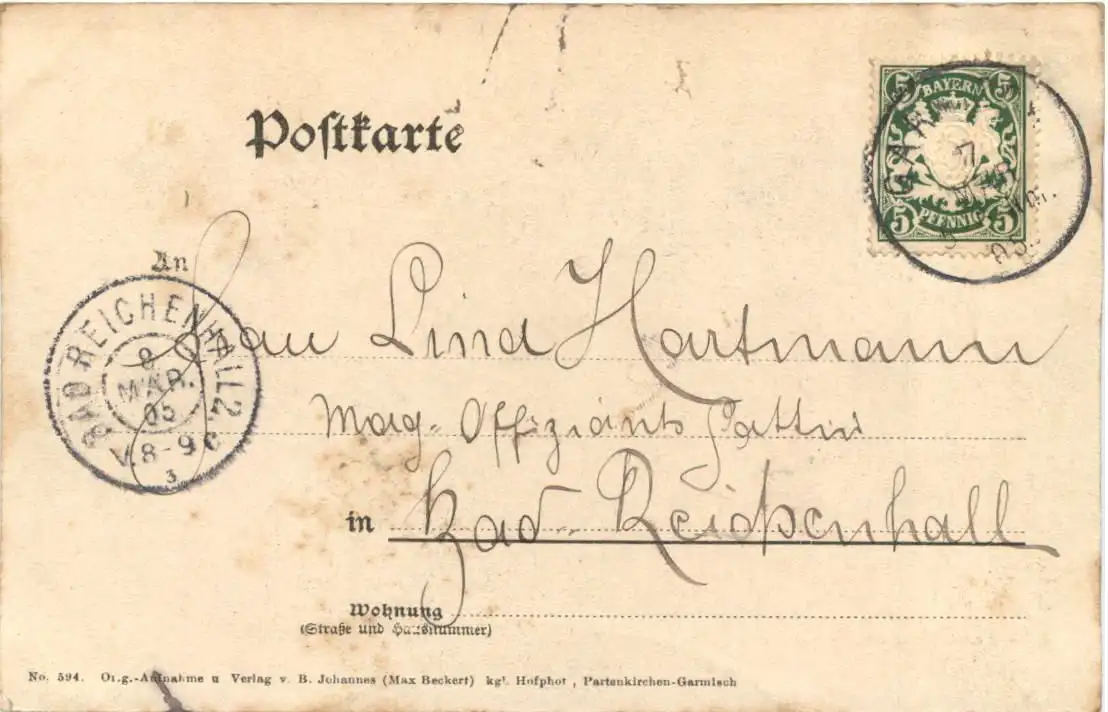 Postkarte
5 BAYERN 5
5 PFENNIG 5
GAR
7 MÄR
05
An
BAD REICHENHALL 2.
8
MÄR.
05
V. 8-9
3
Frau Lina Hartmann
Mag. Offiziants Gattin
in Bad-Reichenhall
Wohnung
(Straße und Hausnummer)
No. 594. Orig.-Aufnahme u Verlag v. B. Johannes (Max Beckert) kgl. Hofphot , Partenkirchen-Garmisch